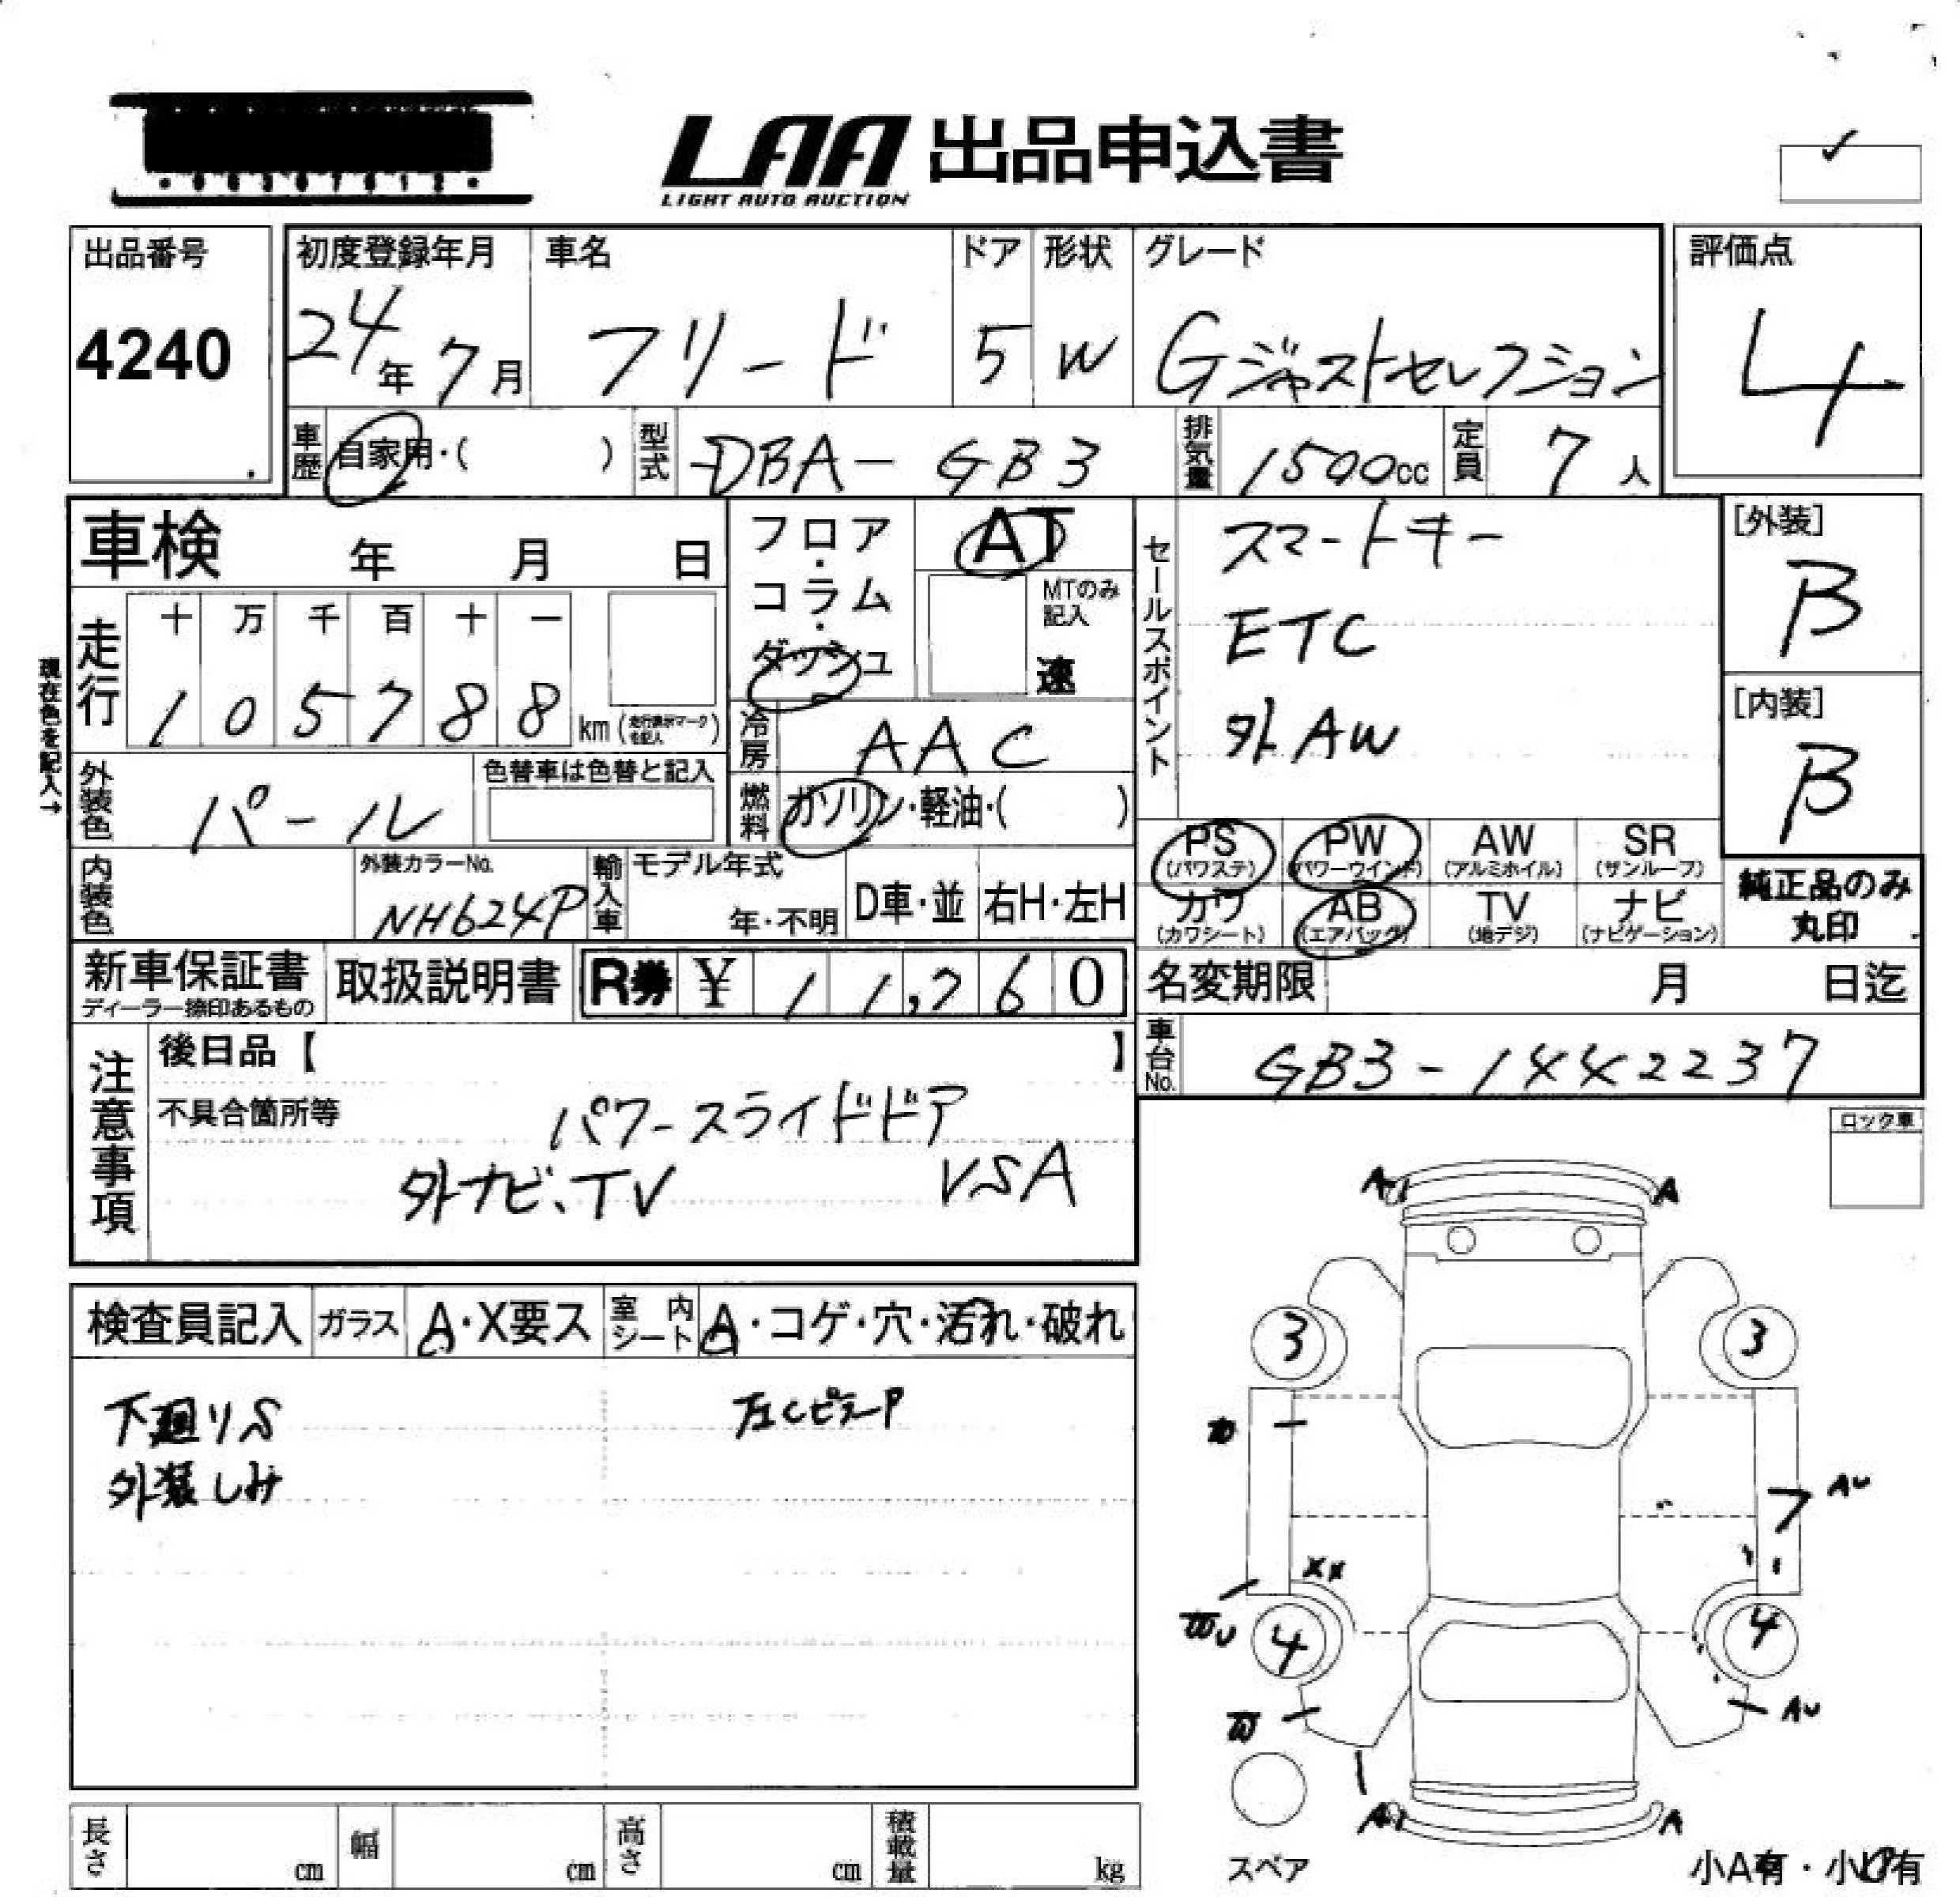 LAA 出品申込書
LIGHT AUTO AUCTION
出品番号
4240
初度登録年月
24年 7月
車名
フリード
ドア
5
形状
W
グレード
Gジャストセレクション
評価点
4
車歴 自家用・( )
型式 DBA-GB3
排気量 1500cc
定員 7人
車検 年 月 日
フロア・コラム・ダッシュ
AT
MTのみ記入
速
走行
十 万 千 百 十 一
1 0 5 7 8 8 km (走行表示マークを記入)
現在色を記入→
外装色 パール
色替車は色替と記入
冷房 AAC
燃料 ガソリン・軽油・( )
内装色
外装カラーNo.
NH624P
輸入車
モデル年式
年・不明
D車・並
右H・左H
セールスポイント
スマートキー
ETC
外AW
[外装]
B
[内装]
B
PS (パワステ)
PW (パワーウインド)
AW (アルミホイル)
SR (サンルーフ)
カワ (カワシート)
AB (エアバッグ)
TV (地デジ)
ナビ (ナビゲーション)
純正品のみ
丸印
新車保証書
ディーラー捺印あるもの
取扱説明書
R券 ¥ 11,260
名変期限 月 日迄
車台No. GB3-1442237
注意事項
後日品【 】
不具合箇所等
パワースライドドア
外ナビ、TV VSA
ロック車
検査員記入
ガラス A・X要ス
室内シート A・コゲ・穴・汚れ・破れ
下廻りS
外装しみ
左CピラーP
A1 A
3 3
AU
7
XX
4 4
AU
A1 A
スペア
小A有・小U有
長さ cm
幅 cm
高さ cm
積載量 kg